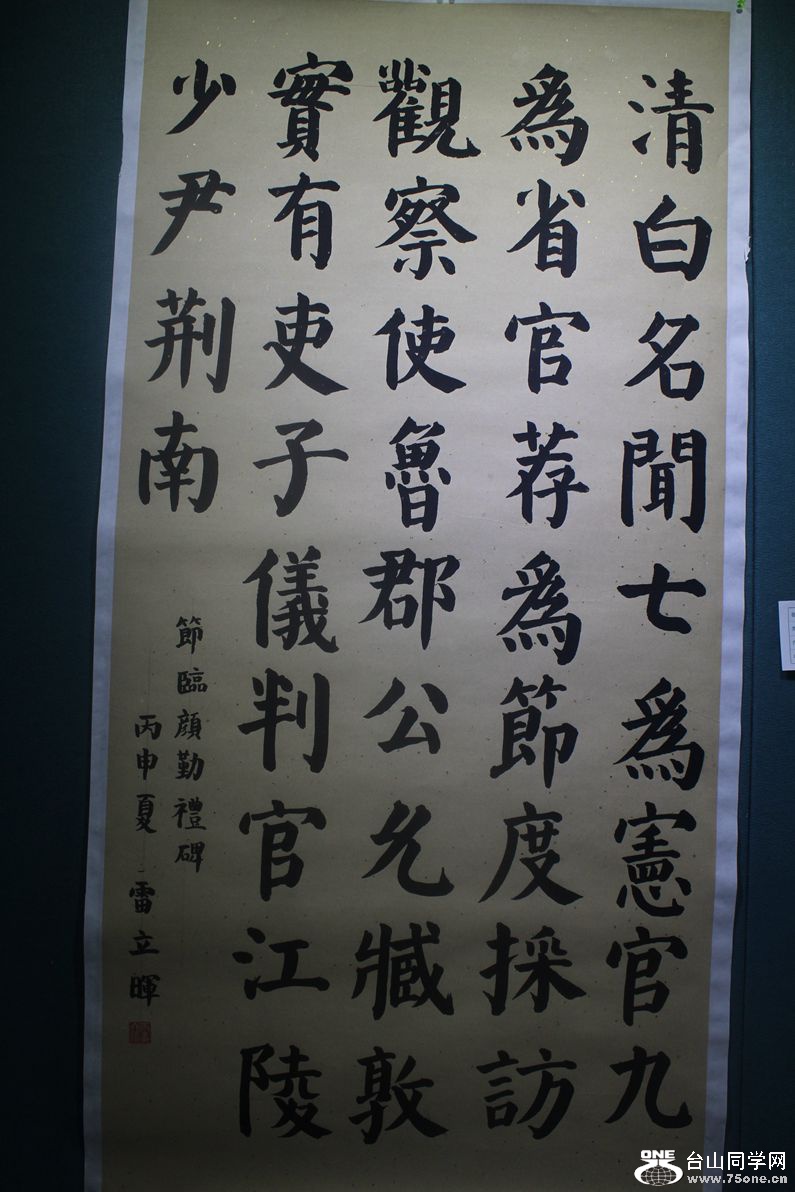 清白名聞七為憲官九
為省官荐為節度採訪
觀察使魯郡公允臧敦
實有吏子儀判官江陵
少尹荆南
節臨顏勤禮碑
丙申夏 雷立暉
ONE
台山同学网
www.75one.cn